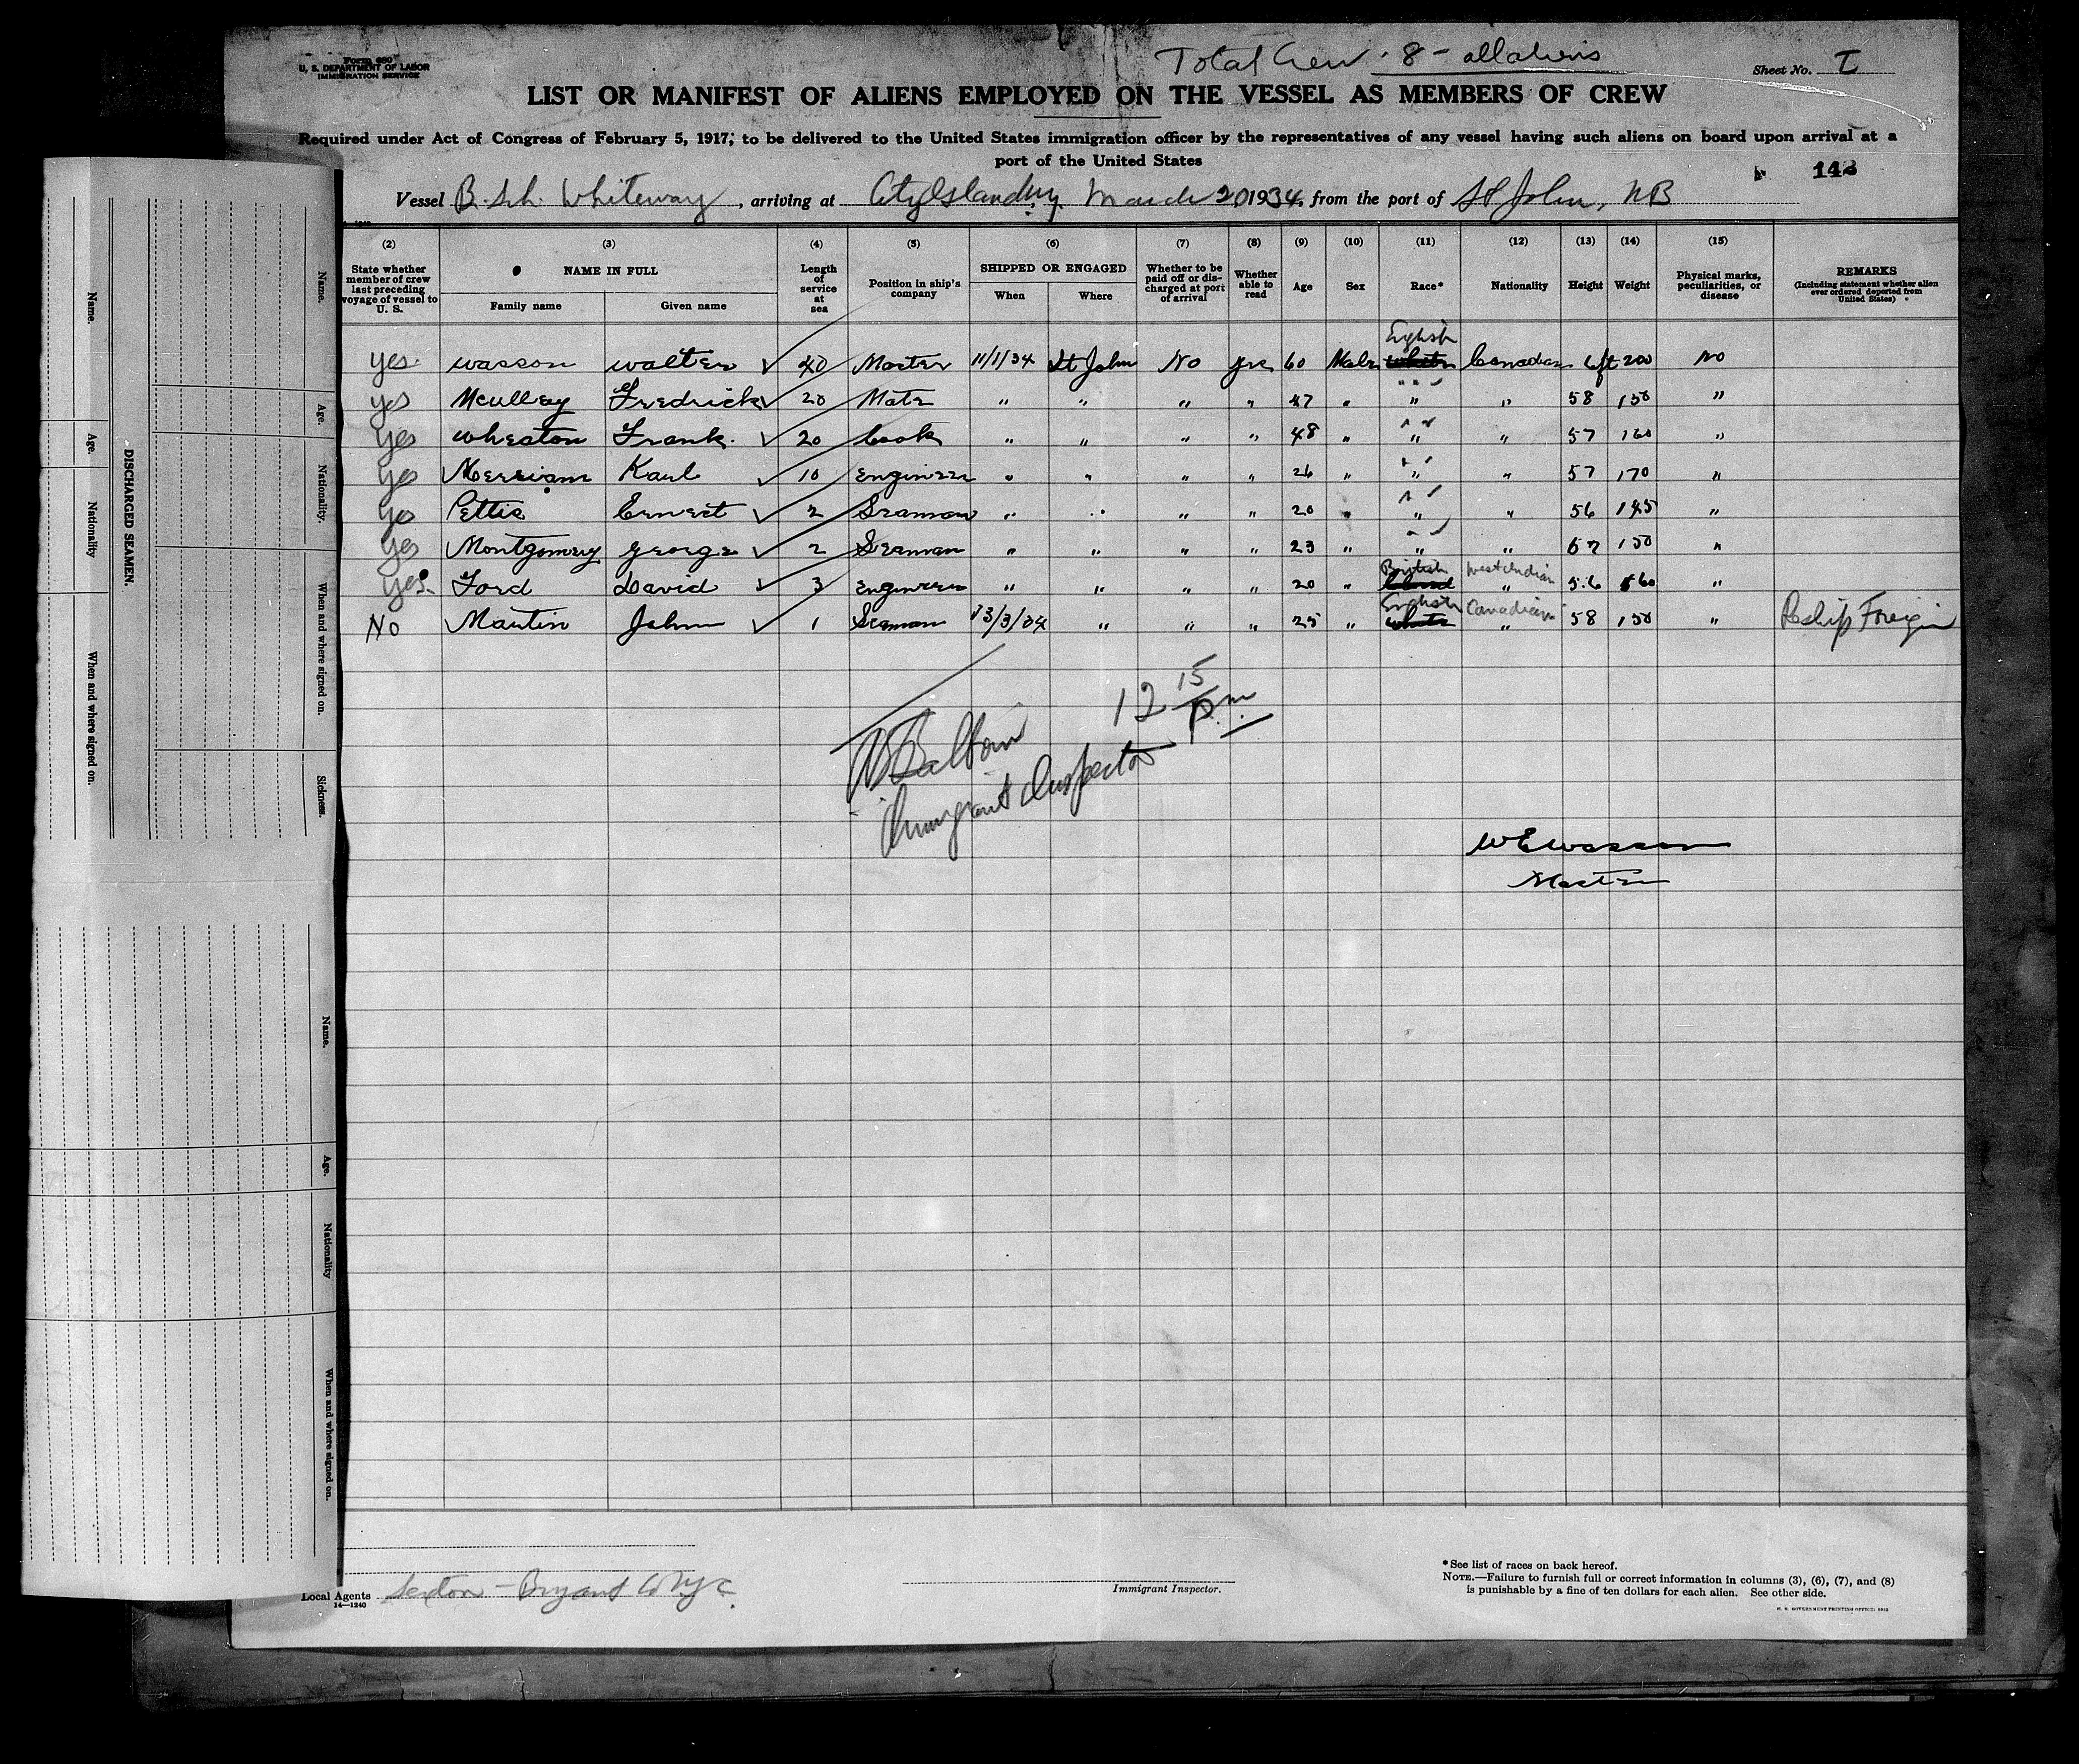 Form 680
U. S. DEPARTMENT OF LABOR
IMMIGRATION SERVICE
Total Crew · 8 – all aliens
Sheet No. I
LIST OR MANIFEST OF ALIENS EMPLOYED ON THE VESSEL AS MEMBERS OF CREW
Required under Act of Congress of February 5, 1917, to be delivered to the United States immigration officer by the representatives of any vessel having such aliens on board upon arrival at a
port of the United States
Vessel B. Sch. Whiteway, arriving at City Island NY. March 20 1934, from the port of St John, NB
(2) (3) (4) (5) (6) (7) (8) (9) (10) (11) (12) (13) (14) (15)
State whether member of crew last preceding voyage of vessel to U. S.
NAME IN FULL
Family name Given name
Length of service at sea
Position in ship's company
SHIPPED OR ENGAGED
When Where
Whether to be paid off or discharged at port of arrival
Whether able to read
Age
Sex
Race*
Nationality
Height
Weight
Physical marks, peculiarities, or disease
REMARKS
(Including statement whether alien ever ordered deported from United States)
English
yes wasson walter ✓ 40 Master 11/1/34 St John No yes 60 Male white Canadian 6ft 200 No
yes Mculley Fredrick ✓ 20 Mate " " " " 47 " " " 58 150 "
yes wheaton Frank. ✓ 20 Cook " " " " 48 " " " 57 160 "
yes Merriam Karl ✓ 10 Engineer " " " " 26 " " " 57 170 "
yes Pettis Ernest ✓ 2 Seaman " " " " 20 " " " 56 145 "
yes Montgomery George ✓ 2 Seaman " " " " 23 " " " 57 150 "
British West Indian
yes. Ford David ✓ 3 Engineer " " " " 20 " " 5.6 160 "
English Canadian
No Martin John ✓ 1 Seaman 13/3/34 " " " 25 " white " 58 150 " Reship Foreign
12 15 pm
Immigrant Inspector
W E Wasson
Master
DISCHARGED SEAMEN.
Name.
Age.
Nationality
When and where signed on.
Name.
Age.
Nationality.
When and where signed on.
Sickness.
Name.
Age.
Nationality
When and where signed on.
Local Agents Sexton – Bryant Co NYC.
14—1240
Immigrant Inspector.
*See list of races on back hereof.
NOTE.—Failure to furnish full or correct information in columns (3), (6), (7), and (8)
is punishable by a fine of ten dollars for each alien. See other side.